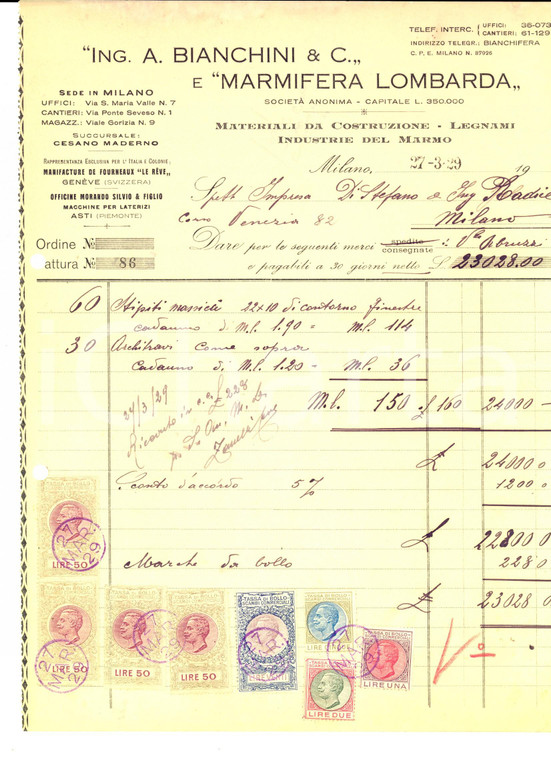 TELEF. INTERC. { UFFICI: 36-073
CANTIERI: 61-129
INDIRIZZO TELEGR.: BIANCHIFERA
C. P. E. MILANO N. 87026
"ING. A. BIANCHINI & C.„
E "MARMIFERA LOMBARDA„
SOCIETÀ ANONIMA - CAPITALE L. 350.000
MATERIALI DA COSTRUZIONE - LEGNAMI
INDUSTRIE DEL MARMO
SEDE IN MILANO
UFFICI: Via S. Maria Valle N. 7
CANTIERI: Via Ponte Seveso N. 1
MAGAZZ.: Viale Gorizia N. 9
SUCCURSALE:
CESANO MADERNO
RAPPRESENTANZA ESCLUSIVA PER L'ITALIA E COLONIE:
MANIFACTURE DE FOURNEAUX "LE RÊVE„
GENÈVE (SVIZZERA)
OFFICINE MORANDO SILVIO & FIGLIO
MACCHINE PER LATERIZI
ASTI (PIEMONTE)
Ordine N.
attura N. 86
Milano, 27-3-29 19
Spett Impresa Di Stefano & Ing Radice
Corso Venezia 82 Milano
Dare per le seguenti merci spedite consegnate: Via Abruzzi
e pagabili a 30 giorni netto £ 23028.00
60 Stipiti massicci 22x10 di contorno finestre
cadauno di M.L. 1.90 = M.L. 114
30 Architravi come sopra
cadauno di M.L. 1.20 = M.L. 36
M.L. 150 £ 160 24000 -
24/3/29
Ricevuto in c.c. £ 228
£ 24000 0
Sconto d'accordo 5% 1200 0
£ 22800 0
Marche da bollo 228 0
£ 23028 0
27 MAR. 29
LIRE 50
LIRE 50
LIRE 50
LIRE 50
TASSA DI BOLLO
SCAMBI COMMERCIALI
LIRE VENTI
TASSA DI BOLLO
LIRE CINQUE
LIRE DUE
LIRE UNA
Vº